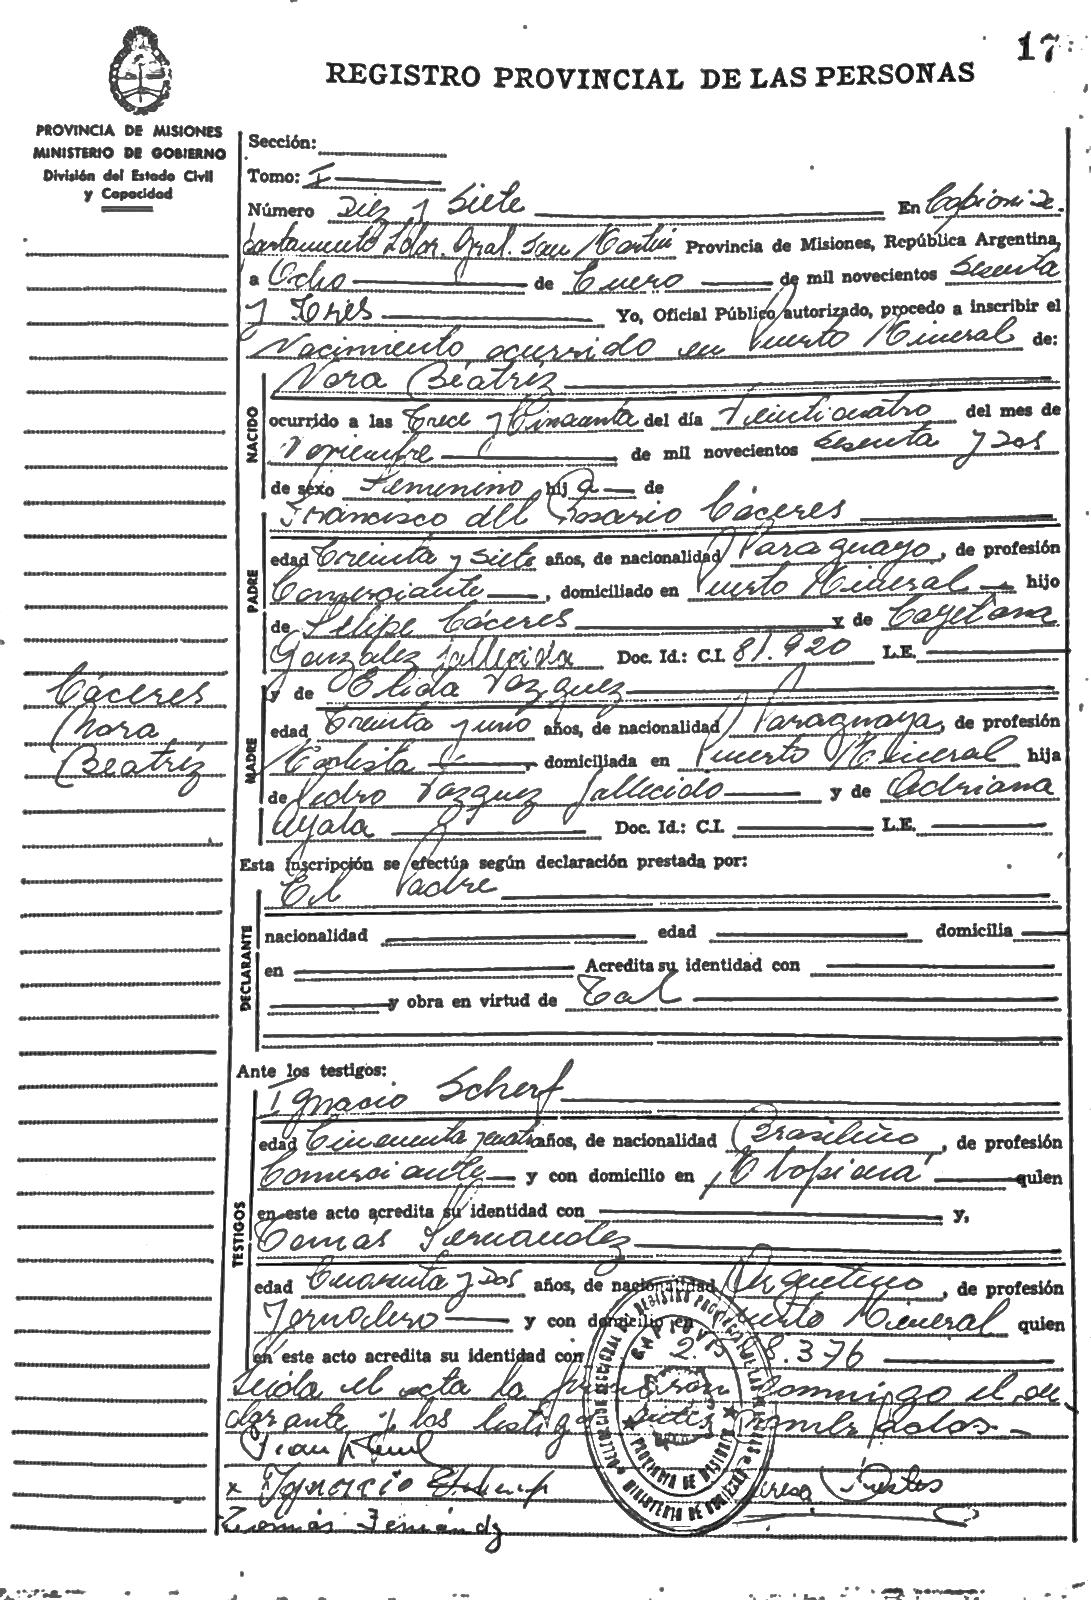 17
REGISTRO PROVINCIAL DE LAS PERSONAS
PROVINCIA DE MISIONES
MINISTERIO DE GOBIERNO
División del Estado Civil
y Capacidad
Sección:
Tomo: I
Número Diez y Siete En Capioví De-
partamento Ldor. Gral. San Martín Provincia de Misiones, República Argentina,
a Ocho de Enero de mil novecientos Sesenta
y Tres Yo, Oficial Público autorizado, procedo a inscribir el
Nacimiento ocurrido en Puerto Mineral de:
NACIDO
Nora Béatríz
ocurrido a las Trece y Cincuenta del día Veinticuatro del mes de
Noviembre de mil novecientos Sesenta y Dos
de sexo Femenino hij a de
PADRE
Francisco del Rosario Cáceres
edad Treinta y Siete años, de nacionalidad Paraguayo, de profesión
Comerciante, domiciliado en Puerto Mineral hijo
de Felipe Cáceres y de Cayetana
González fallecida Doc. Id.: C.I. 81.920 L.E.
MADRE
y de Elida Vázquez
edad Treinta y uno años, de nacionalidad Paraguaya, de profesión
Modista, domiciliada en Puerto Mineral hija
de Pedro Vázquez fallecido y de Adriana
Ayala Doc. Id.: C.I. L.E.
Cáceres
Nora
Béatríz
Esta inscripción se efectúa según declaración prestada por:
DECLARANTE
El Padre
nacionalidad edad domicilia
en Acredita su identidad con
y obra en virtud de Tal
Ante los testigos:
TESTIGOS
Ignacio Scherf
edad Cincuenta y años, de nacionalidad Brasileño, de profesión
Comerciante y con domicilio en quien
en este acto acredita su identidad con y,
Tomás Fernandez
edad Cuarenta y Dos años, de nacionalidad Argentino, de profesión
Jornalero y con domicilio en Puerto Mineral quien
en este acto acredita su identidad con 8.376
Leida el acta la firmaron conmigo el de-
clarante y los testigos antes nombrados-
CAPIOVI
PROVINCIA DE MISIONES
MINISTERIO DE GOBIERNO
Ignacio
Tomás Fernández